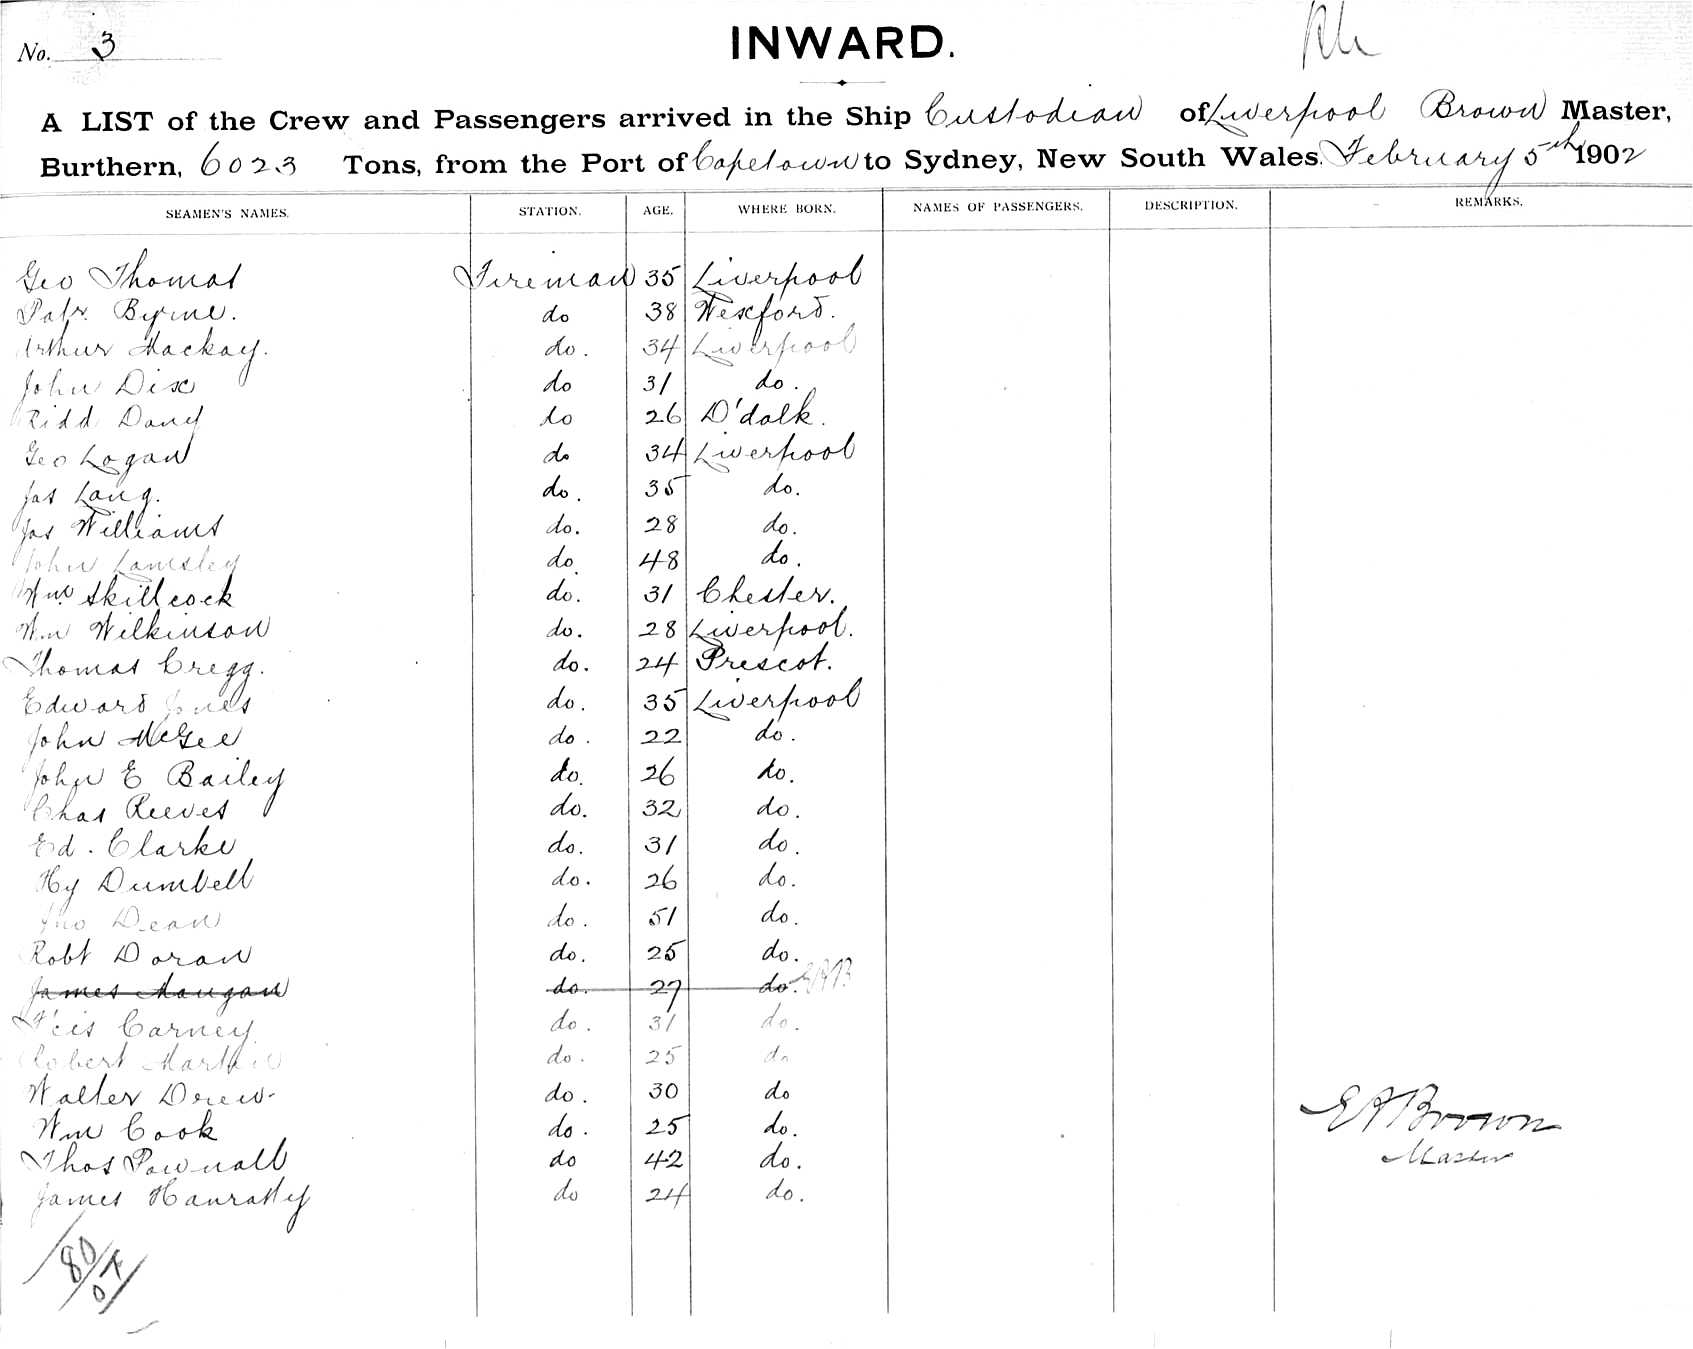 No. 3
INWARD.
A LIST of the Crew and Passengers arrived in the Ship Custodian of Liverpool Brown Master,
Burthern, 6023 Tons, from the Port of Capetown to Sydney, New South Wales. February 5th 1902
SEAMEN'S NAMES. STATION. AGE. WHERE BORN. NAMES OF PASSENGERS. DESCRIPTION. REMARKS.
Geo Thomas Fireman 35 Liverpool
Patr. Byrne. do 38 Wexford.
Arthur Mackay. do. 34 Liverpool
John Dix do 31 do.
Ridd Dany do 26 D'dalk.
Geo Logan do 34 Liverpool
Jas Lang. do. 35 do.
Jas Williams do. 28 do.
John Lamsley do. 48 do.
Wm Skillcock do. 31 Chester.
Wm Wilkinson do. 28 Liverpool.
Thomas Cregg. do. 24 Prescot.
Edward Jones do. 35 Liverpool
John McGee do. 22 do.
John E Bailey do. 26 do.
Chas Reeves do. 32 do.
Ed. Clarke do. 31 do.
Hy Dumbell do. 26 do.
Jno Dean do. 51 do.
Robt Doran do. 25 do.
James Mangan do. 27 do. EAB
F'cis Carney do. 31 do.
Robert Martin do. 25 do
Walter Drew do. 30 do
Wm Cook do. 25 do.
Thos Pownall do 42 do.
James Hanratty do 24 do.
EA Brown
Master
80